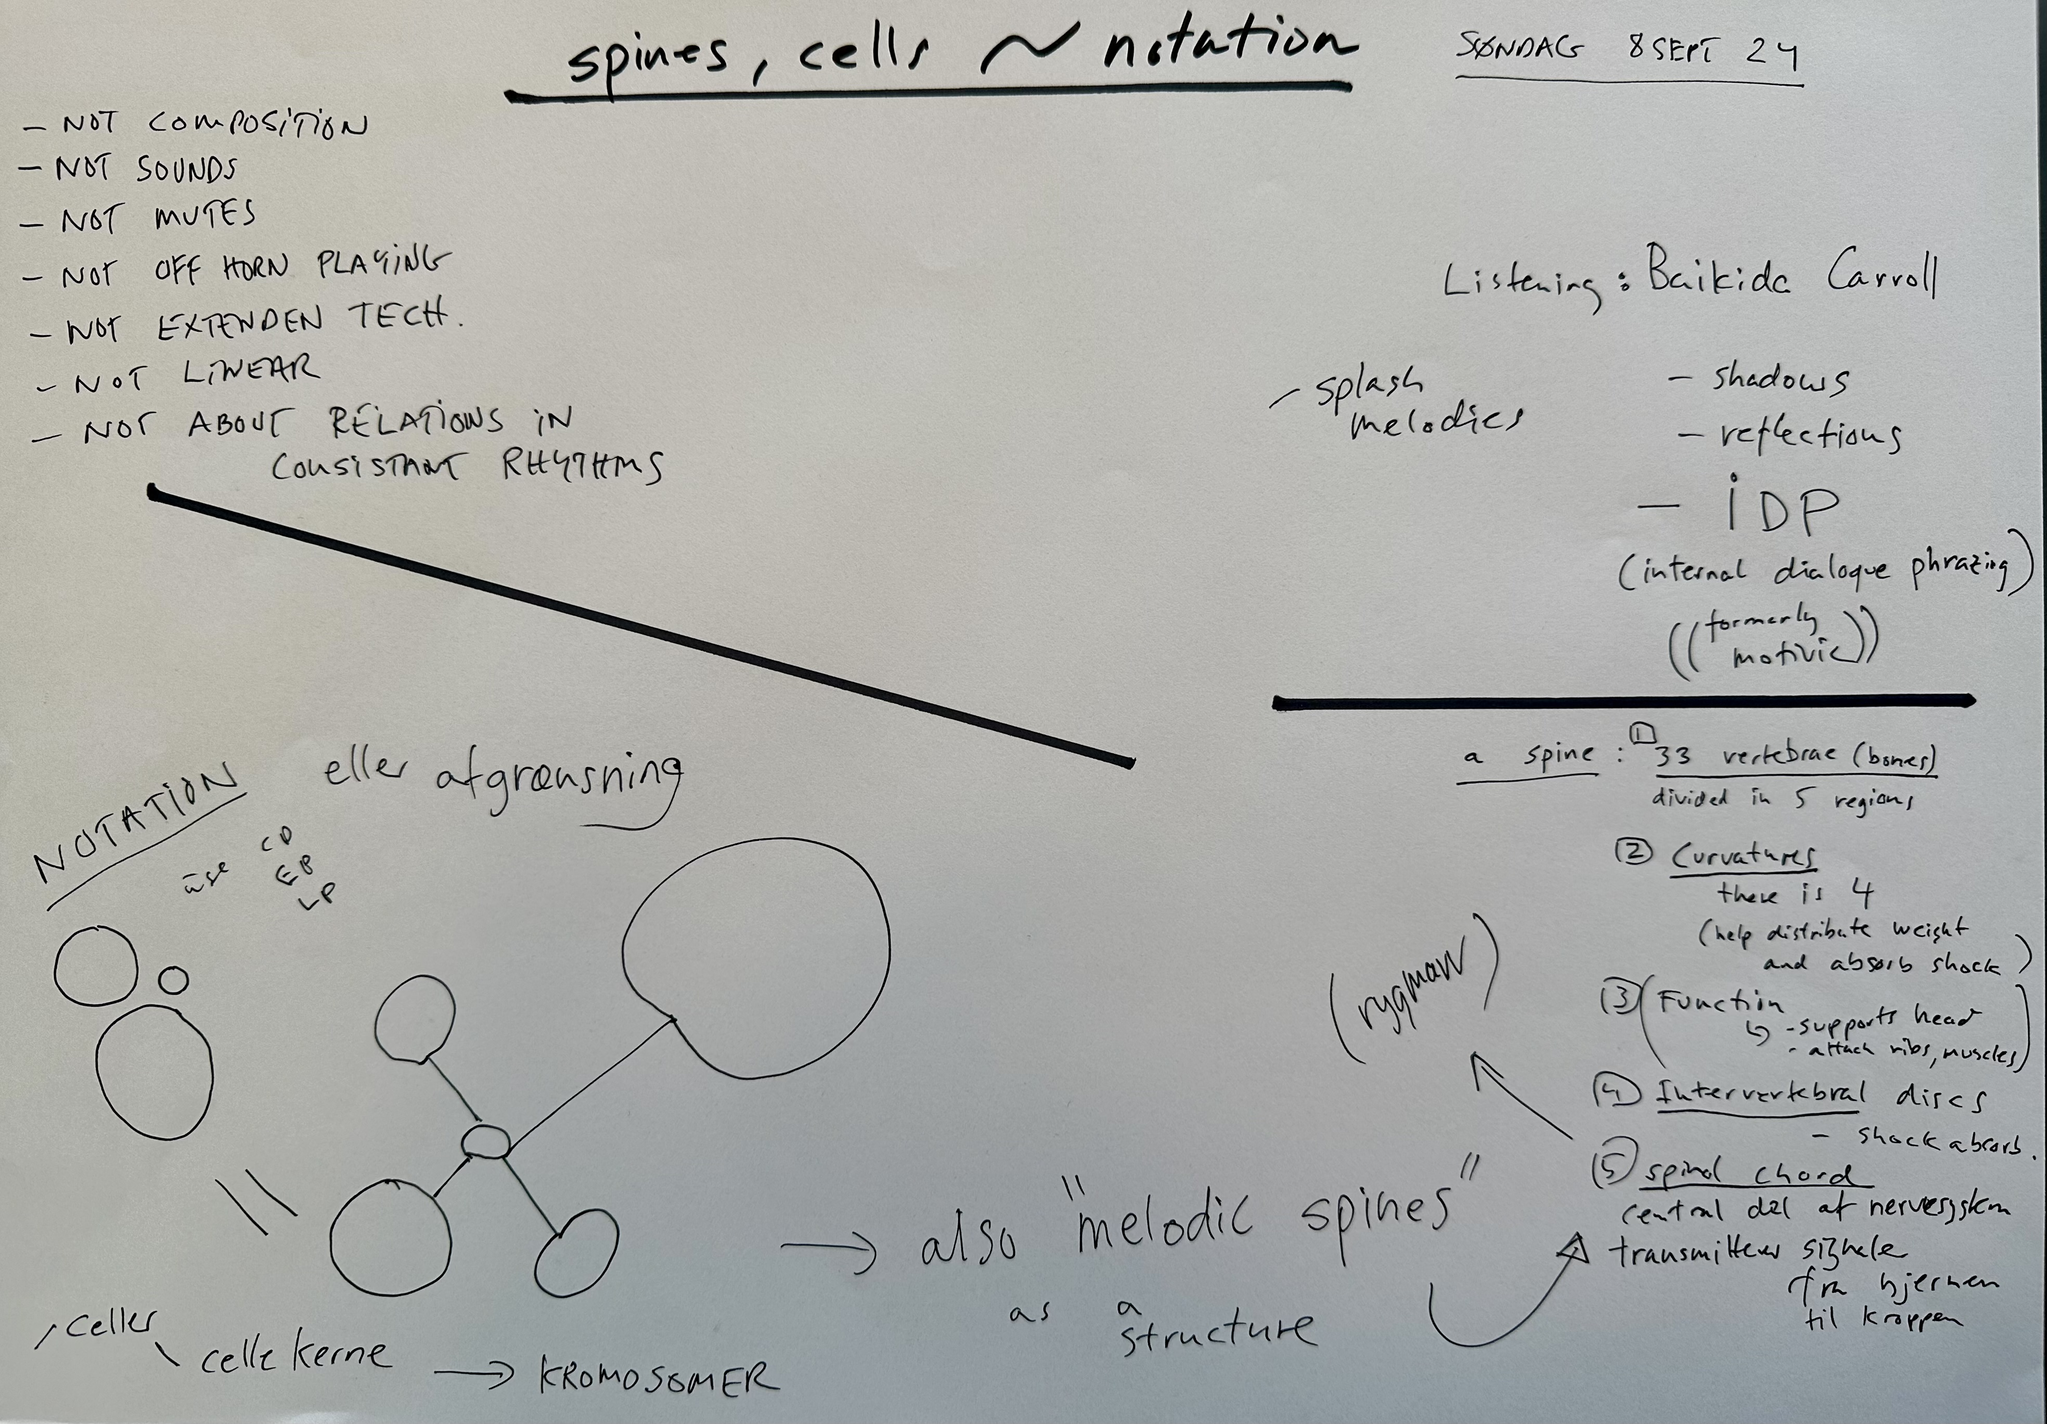 spines, cells ~ notation
SØNDAG 8 SEPT 24
- NOT COMPOSITION
- NOT SOUNDS
- NOT MUTES
- NOT OFF HORN PLAYING
- NOT EXTENDEN TECH.
- NOT LINEAR
- NOT ABOUT RELATIONS IN
CONSISTANT RHYTHMS
Listening: Baikida Carroll
- splash
melodies
- shadows
- reflections
- IDP
(internal dialogue phrazing)
((formerly
motivic))
a spine: ① 33 vertebrae (bones)
divided in 5 regions
② Curvatures
there is 4
(help distribute weight
and absorb shock)
③ (Function
↳ - supports head
- attach ribs, muscles)
④ Intervertebral discs
- shock absorb.
⑤ spinal chord
central del af nervesystem
transmitterer signale
fra hjernen
til kroppen
(rygmarv)
NOTATION
eller afgrænsning
use CD
EP
LP
→ also "melodic spines"
as a
structure
celler
celle kerne → KROMOSOMER